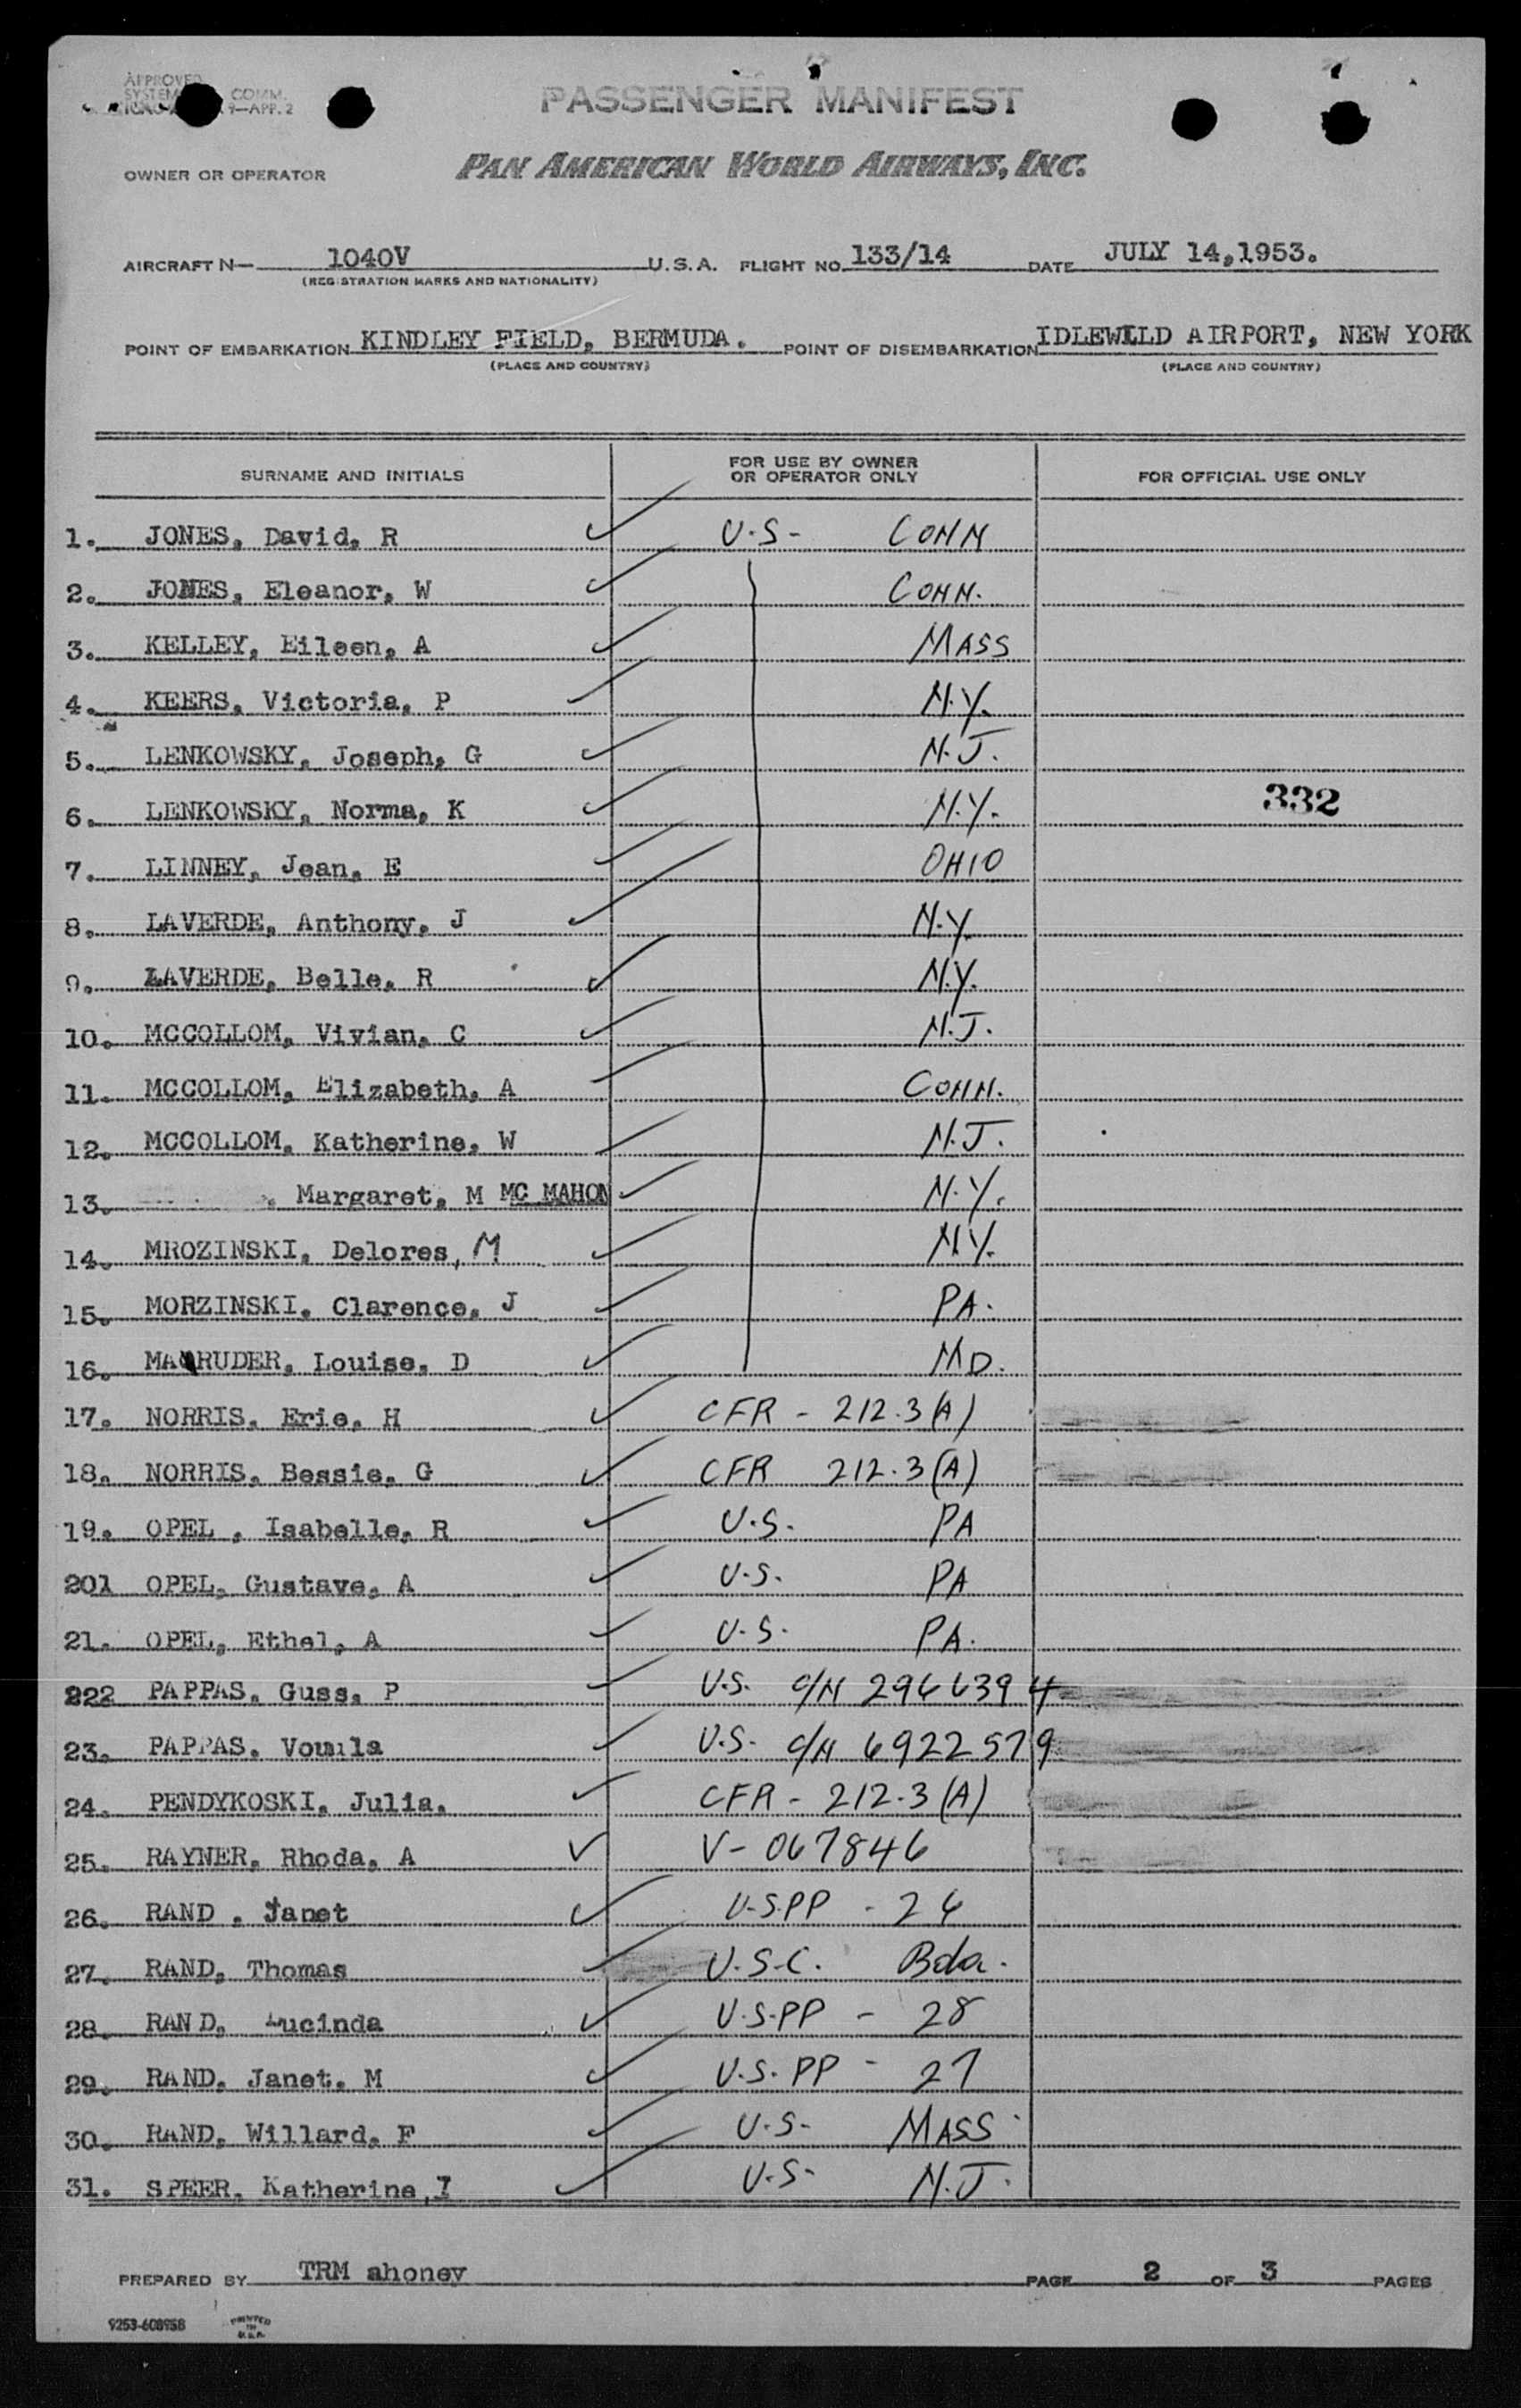 APPROVED
SYSTEM COMM.
9—APP. 2
PASSENGER MANIFEST
OWNER OR OPERATOR PAN AMERICAN WORLD AIRWAYS, INC.
AIRCRAFT N— 1040V U.S.A. FLIGHT NO. 133/14 DATE JULY 14,1953.
(REGISTRATION MARKS AND NATIONALITY)
POINT OF EMBARKATION KINDLEY FIELD, BERMUDA. POINT OF DISEMBARKATION IDLEWILD AIRPORT, NEW YORK
(PLACE AND COUNTRY) (PLACE AND COUNTRY)
SURNAME AND INITIALS FOR USE BY OWNER OR OPERATOR ONLY FOR OFFICIAL USE ONLY
1. JONES, David, R U.S- CONN
2. JONES, Eleanor, W CONN.
3. KELLEY, Eileen, A MASS
4. KEERS, Victoria, P N.Y.
5. LENKOWSKY, Joseph, G N.J.
6. LENKOWSKY, Norma, K N.Y. 332
7. LINNEY, Jean, E OHIO
8. LAVERDE, Anthony, J N.Y.
9. LAVERDE, Belle, R N.Y.
10. MCCOLLOM, Vivian, C N.J.
11. MCCOLLOM, Elizabeth, A CONN.
12. MCCOLLOM, Katherine, W N.J.
13. , Margaret, M MC MAHON N.Y.
14. MROZINSKI, Delores, M N.Y.
15. MORZINSKI, Clarence, J PA.
16. MAGRUDER, Louise, D MD.
17. NORRIS, Eric, H CFR - 212.3(A)
18. NORRIS, Bessie, G CFR 212.3(A)
19. OPEL , Isabelle, R U.S. PA
201 OPEL, Gustave, A U.S. PA
21. OPEL, Ethel, A U.S. PA.
222 PAPPAS, Guss, P U.S. C/N 2966394
23. PAPPAS, Voula U.S. C/N 6922579
24. PENDYKOSKI, Julia, CFR - 212.3(A)
25. RAYNER, Rhoda, A V- 067846
26. RAND , Janet U.S.PP - 26
27. RAND, Thomas U.S.C. Bda.
28. RAND, Lucinda U.S.PP - 28
29. RAND, Janet, M U.S. PP - 27
30. RAND, Willard, F U.S. MASS
31. SPEER, Katherine, I U.S. N.J.
PREPARED BY TRM ahoney PAGE 2 OF 3 PAGES
9253-608958 PRINTED IN U.S.A.